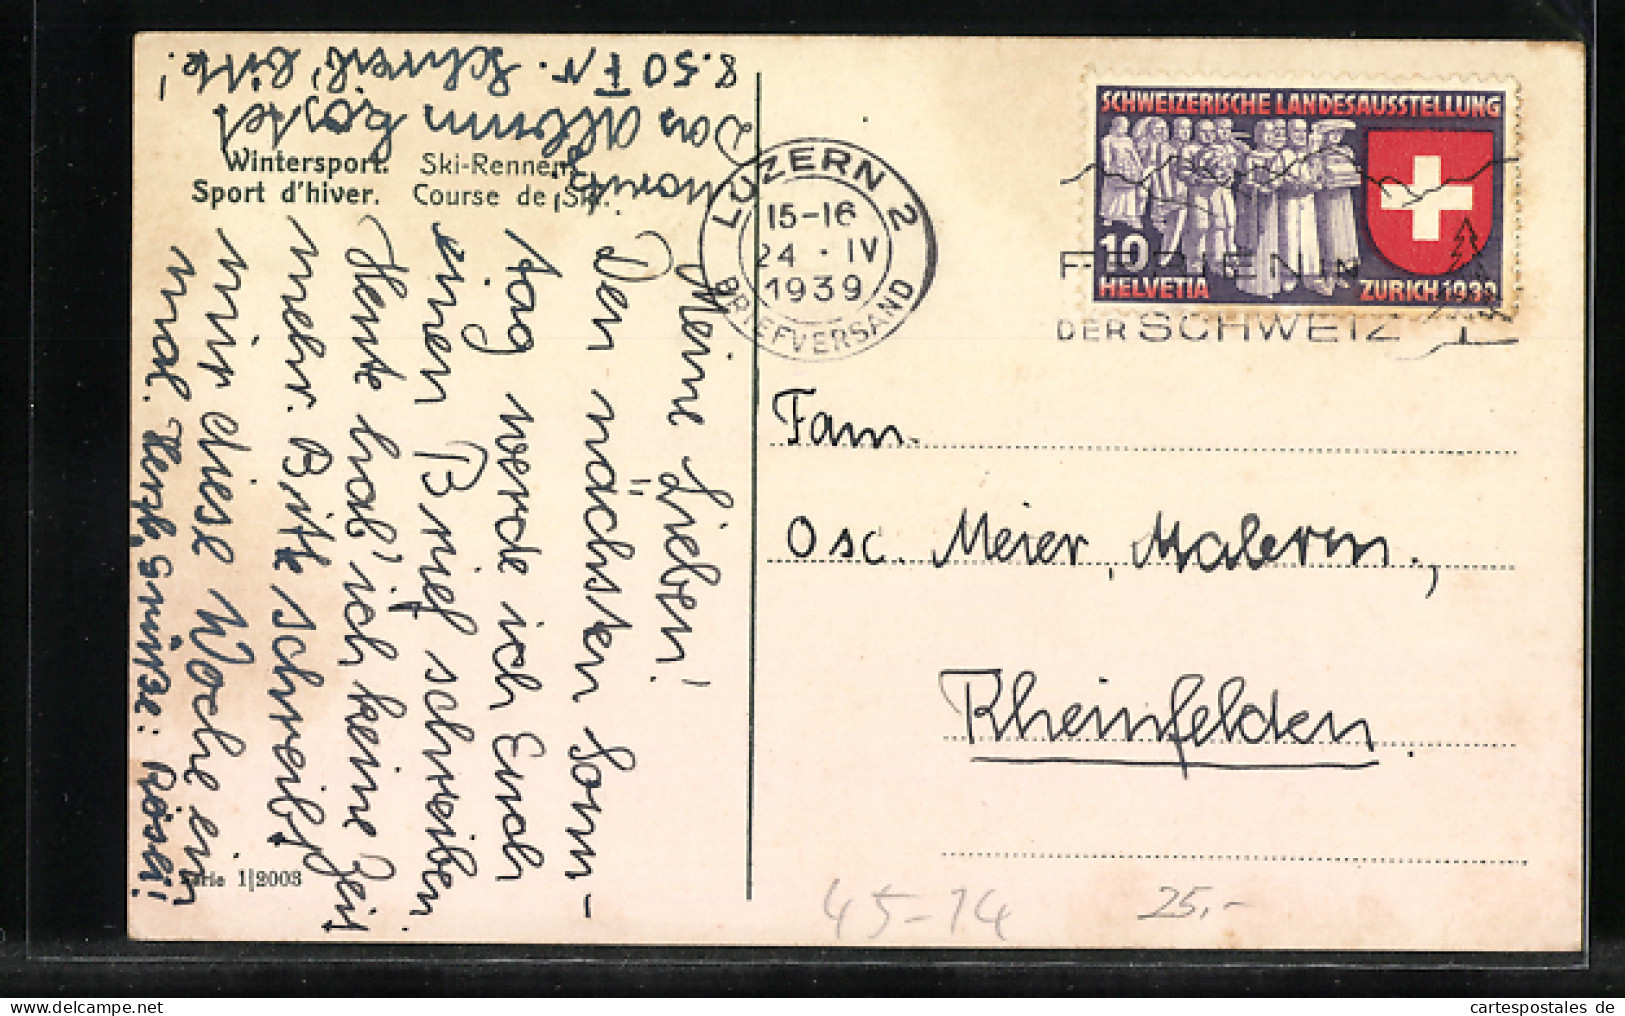 8.50 Fr. Schreib' bitte!
Das Album kostet
Wintersport. Ski-Rennen.
Sport d'hiver. Course de Ski.
Meine Lieben!
Den nächsten Sonn-
tag werde ich Euch
einen Brief schreiben.
Heute hab' ich keine Zeit
mehr. Bitte schreibt
mir diese Woche ein
mal. Herzl. Grüsse: Rösli!
Serie 1|2003
LUZERN 2
15-16
24 · IV
1939
BRIEFVERSAND
SCHWEIZERISCHE LANDESAUSSTELLUNG
10
HELVETIA
ZÜRICH 1939
FERIEN IN
DER SCHWEIZ
Fam.
Osc. Meier, Malerm.,
Rheinfelden.
45-14
25.-
cartespostales de